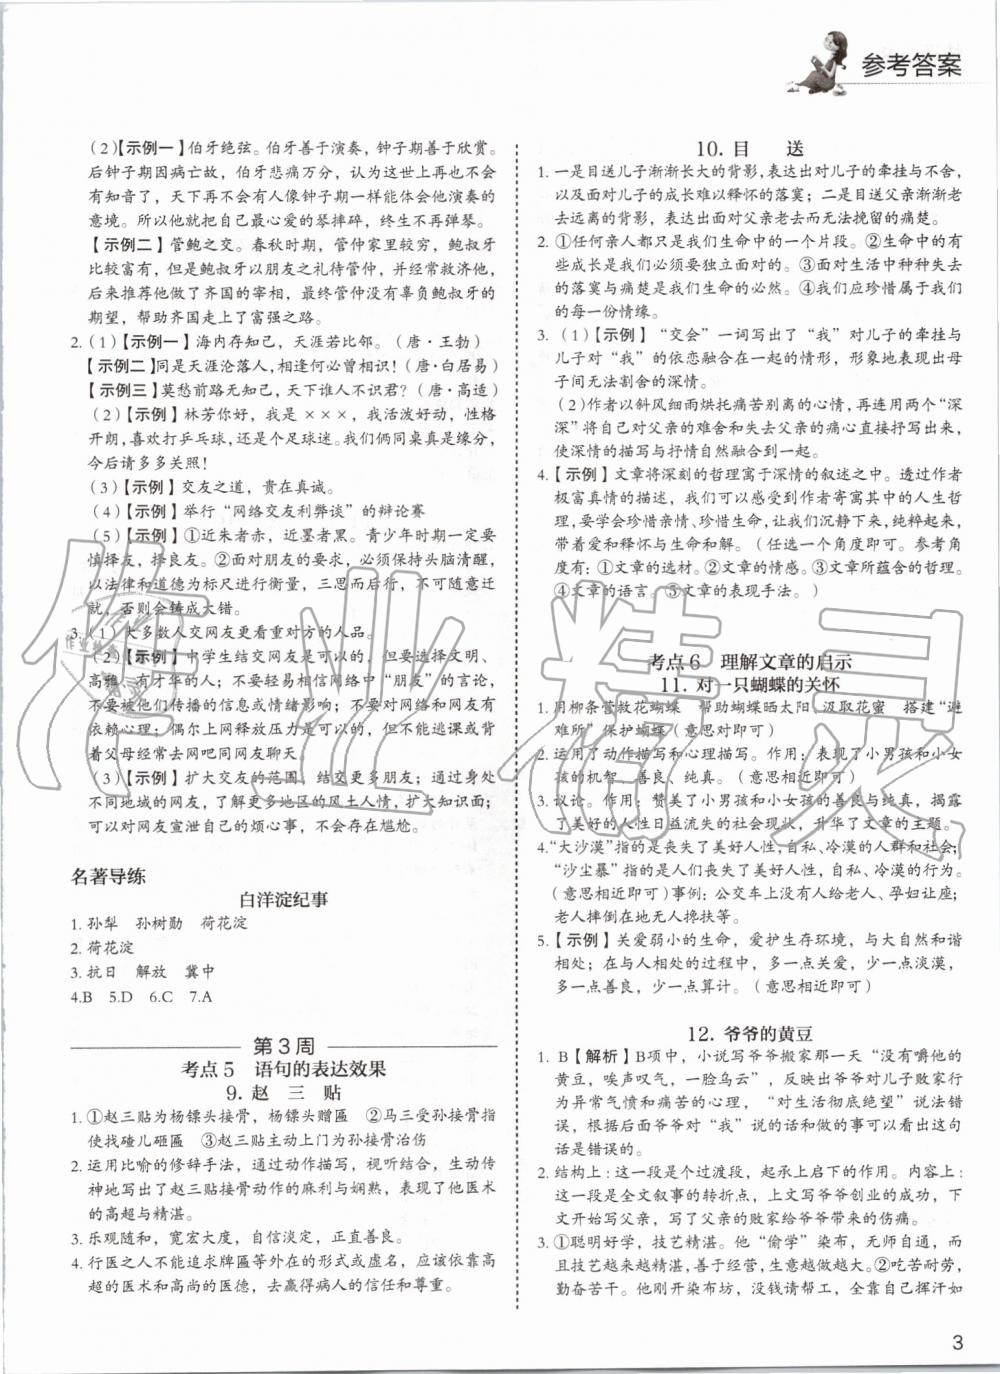 参考答案
(2)【示例一】伯牙绝弦。伯牙善于演奏，钟子期善于欣赏。
后钟子期因病亡故，伯牙悲痛万分，认为这世上再也不会
有知音了，天下再不会有人像钟子期一样能体会他演奏的
意境。所以他就把自己最心爱的琴摔碎，终生不再弹琴。
【示例二】管鲍之交。春秋时期，管仲家里较穷，鲍叔牙
比较富有，但是鲍叔牙以朋友之礼待管仲，并经常救济他，
后来推荐他做了齐国的宰相，最终管仲没有辜负鲍叔牙的
期望，帮助齐国走上了富强之路。
2.(1)【示例一】海内存知己，天涯若比邻。(唐·王勃)
【示例二】同是天涯沦落人,相逢何必曾相识！(唐·白居易)
【示例三】莫愁前路无知己，天下谁人不识君？(唐·高适)
(2)【示例】林芳你好，我是×××，我活泼好动，性格
开朗,喜欢打乒乓球,还是个足球迷。我们俩同桌真是缘分,
今后请多多关照！
(3)【示例】交友之道，贵在真诚。
(4)【示例】举行“网络交友利弊谈”的辩论赛
(5)【示例】①近朱者赤，近墨者黑。青少年时期一定要
慎择友，择良友。②面对朋友的要求，必须保持头脑清醒，
以法律和道德为标尺进行衡量，三思而后行，不能意气迁
就，否则会铸成大错。
3.(1)大多数人交网友更看重对方的人品。
(2)【示例】中学生结交网友是可以的，但要选择文明、
高雅、有才华的人；不要轻易相信网络中“朋友”的言论，
不要被他们传播的信息或情绪影响；不要对网络和网友有
依赖心理；偶尔上网释放压力是可以的，但不能逃课或背
着父母经常去网吧同网友聊天
(3)【示例】扩大交友的范围，结交更多朋友；通过身处
不同地域的网友，了解更多地区的风土人情，扩大知识面；
可以对网友宣泄自己的烦心事，不会存在尴尬。
名著导练
白洋淀纪事
1.孙犁　孙树勋　荷花淀
2.荷花淀
3.抗日　解放　冀中
4.B　5.D　6.C　7.A
第3周
考点5　语句的表达效果
9.赵　三　贴
1.①赵三贴为杨镖头接骨，杨镖头赠匾　②马三受孙接骨指
使找碴儿砸匾　③赵三贴主动上门为孙接骨治伤
2.运用比喻的修辞手法，通过动作描写，视听结合，生动传
神地写出了赵三贴接骨动作的麻利与娴熟，表现了他医术
的高超与精湛。
3.乐观随和，宽宏大度，自信淡定，正直善良。
4.行医之人不能追求牌匾等外在的形式或虚名，应该依靠高
超的医术和高尚的医德，去赢得病人的信任和尊重。
10.目　送
1.一是目送儿子渐渐长大的背影,表达出对儿子的牵挂与不舍,
以及面对儿子的成长难以释怀的落寞；二是目送父亲渐渐老
去远离的背影，表达出面对父亲老去而无法挽留的痛楚。
2.①任何亲人都只是我们生命中的一个片段。②生命中的有
些成长是我们必须要独立面对的。③面对生活中种种失去
的落寞与痛楚是生命的必然。④我们应珍惜属于我们的
每一份情缘。
3.(1)【示例】“交会”一词写出了“我”对儿子的牵挂与
儿子对“我”的依恋融合在一起的情形，形象地表现出母
子间无法割舍的深情。
(2)作者以斜风细雨烘托痛苦别离的心情，再连用两个“深
深”将自己对父亲的难舍和失去父亲的痛心直接抒写出来，
使深情的描写与抒情自然融合到一起。
4.【示例】文章将深刻的哲理寓于深情的叙述之中。透过作者
极富真情的描述，我们可以感受到作者寄寓其中的人生哲
理,要学会珍惜亲情、珍惜生命,让我们沉静下来,纯粹起来,
带着爱和释怀与生命和解。(任选一个角度即可。参考角
度有：①文章的选材。②文章的情感。③文章所蕴含的哲理。
④文章的语言。⑤文章的表现手法。)
考点6　理解文章的启示
11.对一只蝴蝶的关怀
1.用柳条营救花蝴蝶　帮助蝴蝶晒太阳　汲取花蜜　搭建“避
难所”保护蝴蝶(意思对即可)
2.运用了动作描写和心理描写。作用：表现了小男孩和小女
孩的机智、善良、纯真。(意思相近即可)
3.议论。作用：赞美了小男孩和小女孩的善良与纯真，揭露
了美好的人性日益流失的社会现状，升华了文章的主题。
4.“大沙漠”指的是丧失了美好人性,自私、冷漠的人群和社会;
“沙尘暴”指的是人们丧失了美好人性,自私、冷漠的行为。
(意思相近即可)事例：公交车上没有人给老人、孕妇让座；
老人摔倒在地无人搀扶等。
5.【示例】关爱弱小的生命，爱护生存环境，与大自然和谐
相处；在与人相处的过程中，多一点关爱，少一点淡漠，
多一点善良，少一点算计。(意思相近即可)
12.爷爷的黄豆
1.B【解析】B项中，小说写爷爷搬家那一天“没有嚼他的
黄豆，唉声叹气，一脸乌云”，反映出爷爷对儿子败家行
为异常气愤和痛苦的心理，“对生活彻底绝望”说法错
误，根据后面爷爷对“我”说的话和做的事可以看出这句
话是错误的。
2.结构上：这一段是个过渡段，起承上启下的作用。内容上：
这一段是全文叙事的转折点，上文写爷爷创业的成功，下
文开始写父亲，写了父亲的败家给爷爷带来的伤痛。
3.①聪明好学，技艺精湛。他“偷学”染布，无师自通，而
且技艺越来越精湛，善于经营,生意越做越大。②吃苦耐劳，
勤奋苦干。他刚开染布坊，没钱请帮工，全靠自己挥汗如
3
作业精灵